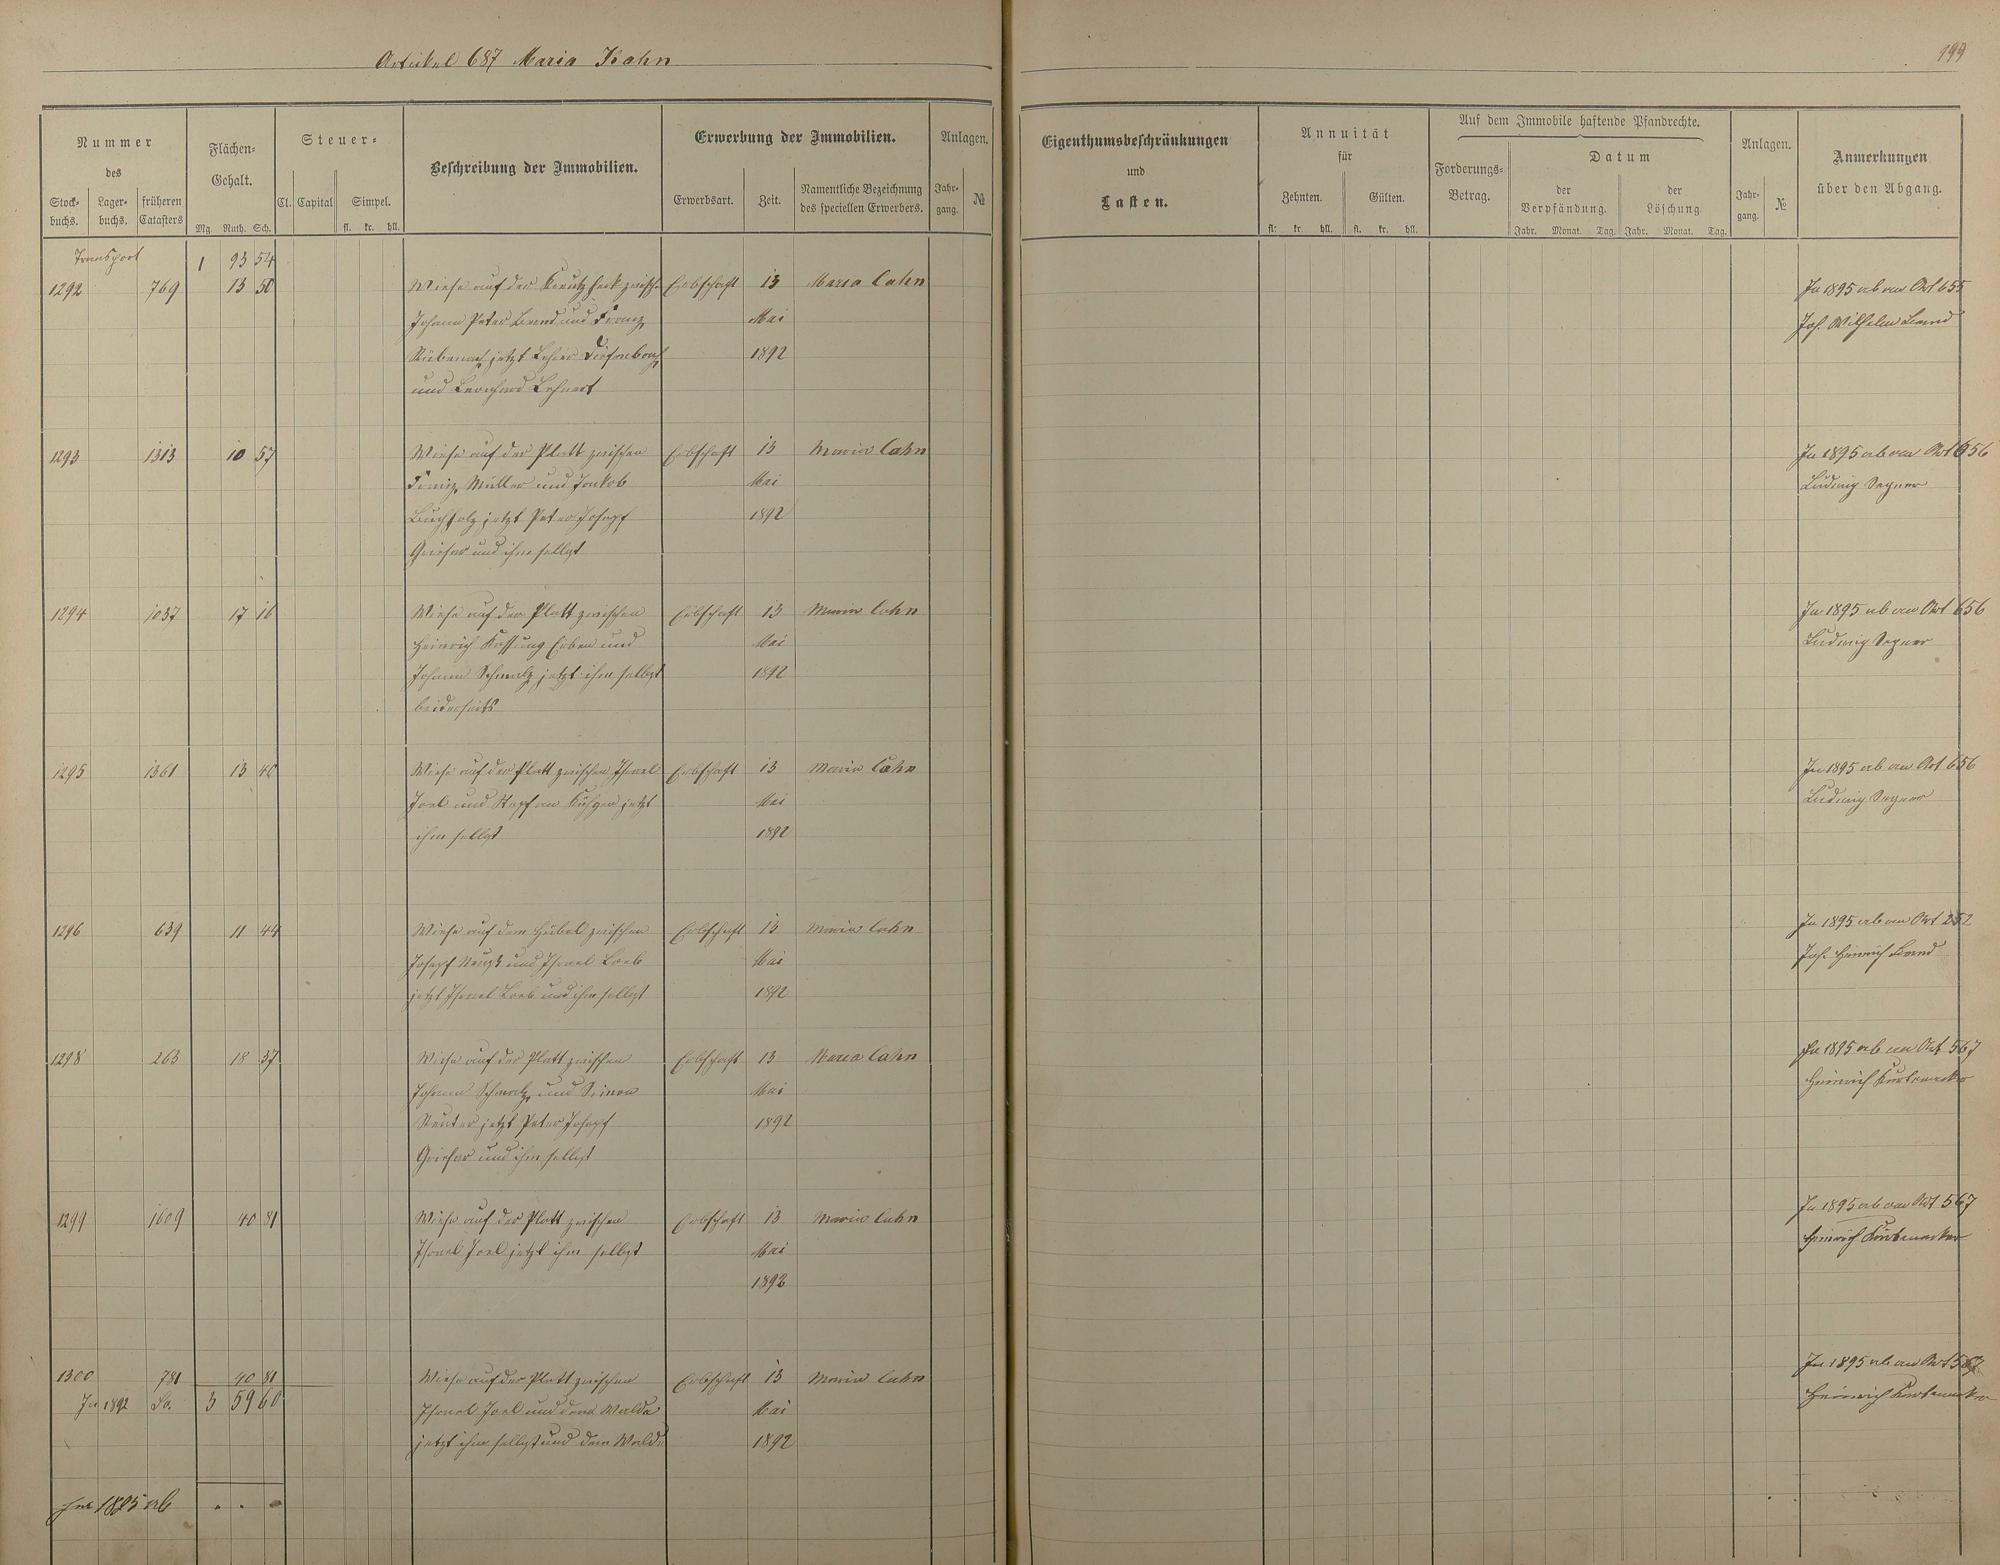 Artikel 687 Maria Kahn
199
Nummer
des
Stock-
buchs.
Lager-
buchs.
früheren
Catasters
Flächen-
Gehalt.
Mg. Ruth. Sch.
Steuer-
Cl. Capital Simpel.
fl. kr. hll.
Beschreibung der Immobilien.
Erwerbung der Immobilien.
Erwerbsart. Zeit.
Namentliche Bezeichnung
des speciellen Erwerbers.
Anlagen.
Jahr-
gang. №
Eigenthumsbeschränkungen
und
Lasten.
Annuität
für
Zehnten. Gülten.
fl. kr. hll. fl. kr. hll.
Auf dem Immobile haftende Pfandrechte.
Forderungs-
Betrag.
Datum
der
Verpfändung.
der
Löschung.
Jahr. Monat. Tag. Jahr. Monat. Tag.
Anlagen.
Jahr-
gang. №
Anmerkungen
über den Abgang.
Transport 1 93 54
1292 769 13 50 Wiese auf der zwisch. Erbschaft 13 Maria Cahn In 1895 ab an Art 655
Johann Peter und Franz Mai Jos. Wilhelm
jetzt Diefenbach 1892
und Lehnert
1293 1313 10 57 Wiese auf der Platt zwischen Erbschaft 13 Maria Cahn In 1895 ab an Art 656
Franz Müller und Jakob Mai Ludwig
Buchholz jetzt Peter Joseph 1892
Griesar und ihm selbst
1294 1037 17 16 Wiese auf der Platt zwischen Erbschaft 13 Maria Cahn In 1895 ab an Art 656
Heinrich Erben und Mai Ludwig
Johann Schmalz jetzt ihm selbst 1892
beiderseits
1295 1361 13 40 Wiese auf der Platt zwischen Israel Erbschaft 13 Maria Cahn In 1895 ab an Art 656
Joel und Stephan jetzt Mai Ludwig
ihm selbst 1892
1296 639 11 44 Wiese auf dem Hübel zwischen Erbschaft 13 Maria Cahn In 1895 ab an Art 252
Joseph und Israel Loeb Mai Jos. Heinrich
jetzt Israel Loeb und ihm selbst 1892
1298 263 18 37 Wiese auf der Platt zwischen Erbschaft 13 Maria Cahn In 1895 ab an Art 567
Johann Schmalz und Simon Mai Heinrich
Reuter jetzt Peter Joseph 1892
Griesar und ihm selbst
1299 1609 40 81 Wiese auf der Platt zwischen Erbschaft 13 Maria Cahn In 1895 ab an Art 567
Israel Joel jetzt ihm selbst Mai Heinrich
1892
1300 781 40 81 Wiese auf der Platt zwischen Erbschaft 13 Maria Cahn In 1895 ab an Art 567
In 1892 So. 3 59 60 Israel Joel und dem Walde Mai Heinrich
jetzt ihm selbst und dem Walde 1892
In 1895 ab